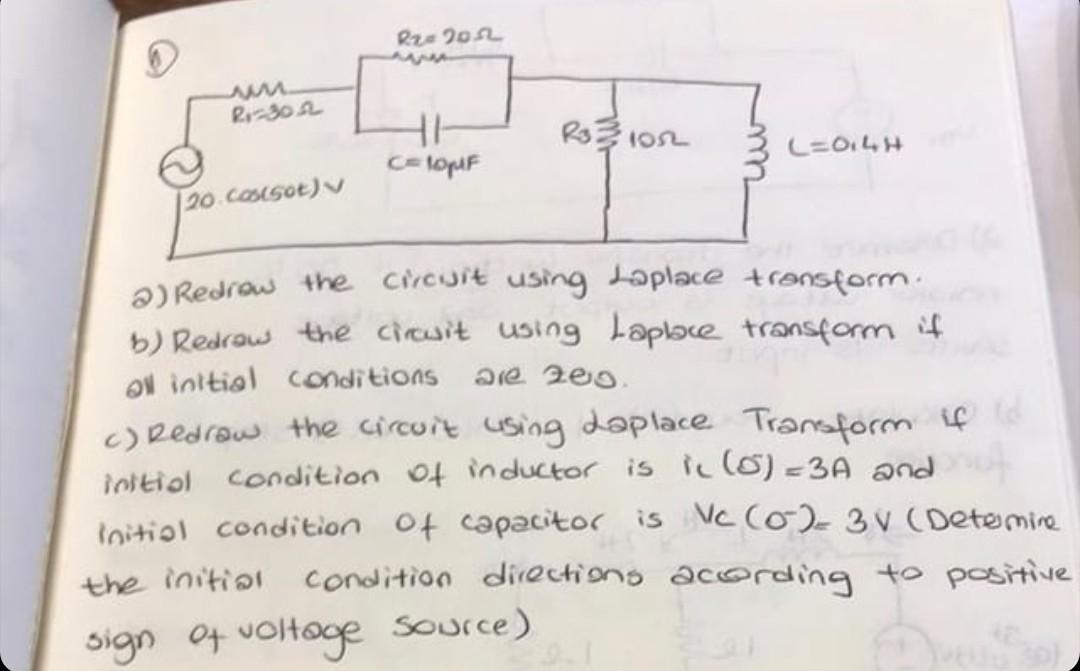 1
R2=20Ω
R1=30Ω
C=10μF
R3 10Ω
L=0.4H
20.cos(50t)V
a) Redraw the circuit using Laplace transform.
b) Redraw the circuit using Laplace transform if
all initial conditions are zero.
c) Redraw the circuit using Laplace Transform if
initial condition of inductor is iL(0⁻)=3A and
initial condition of capacitor is Vc(0⁻)=3V (Determine
the initial condition directions according to positive
sign of voltage source)